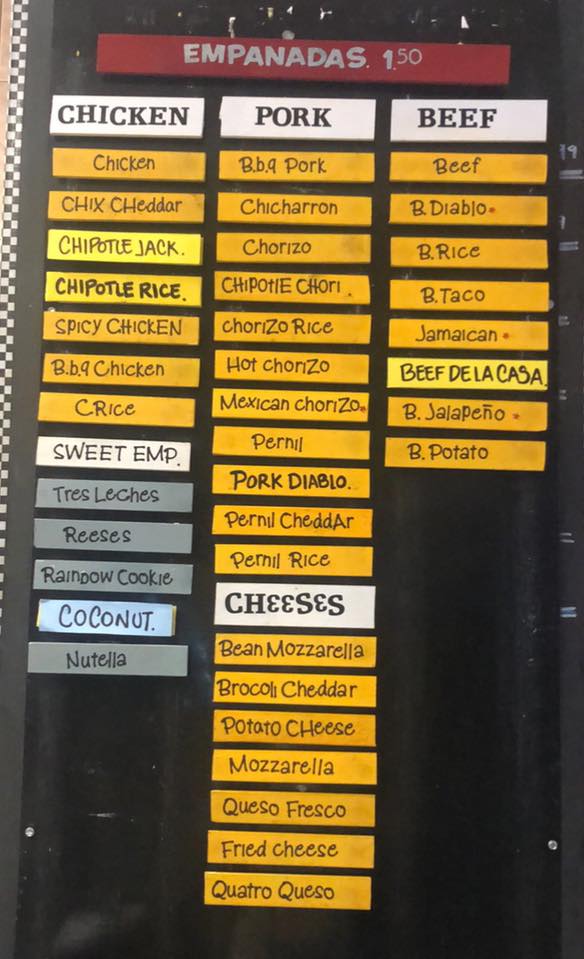 EMPANADAS. 1.50
CHICKEN
Chicken
CHIX CHeddar
CHIPOTLE JACK.
CHIPOTLE RICE.
SPICY CHICKEN
B.b.q Chicken
C.Rice
SWEET EMP.
Tres Leches
Reeses
Rainbow Cookie
COCONUT.
Nutella
PORK
B.b.q Pork
Chicharron
Chorizo
CHIPOTlE CHORI.
chorizo Rice
Hot chorizo
Mexican chorizo
Pernil
PORK DIABLO.
Pernil CheddAr
Pernil Rice
CHEESES
Bean Mozzarella
Brocoli Cheddar
Potato CHeese
Mozzarella
Queso Fresco
Fried cheese
Quatro Queso
BEEF
Beef
B.Diablo
B.Rice
B.Taco
Jamaican
BEEF DE LA CASA.
B. Jalapeño
B. Potato